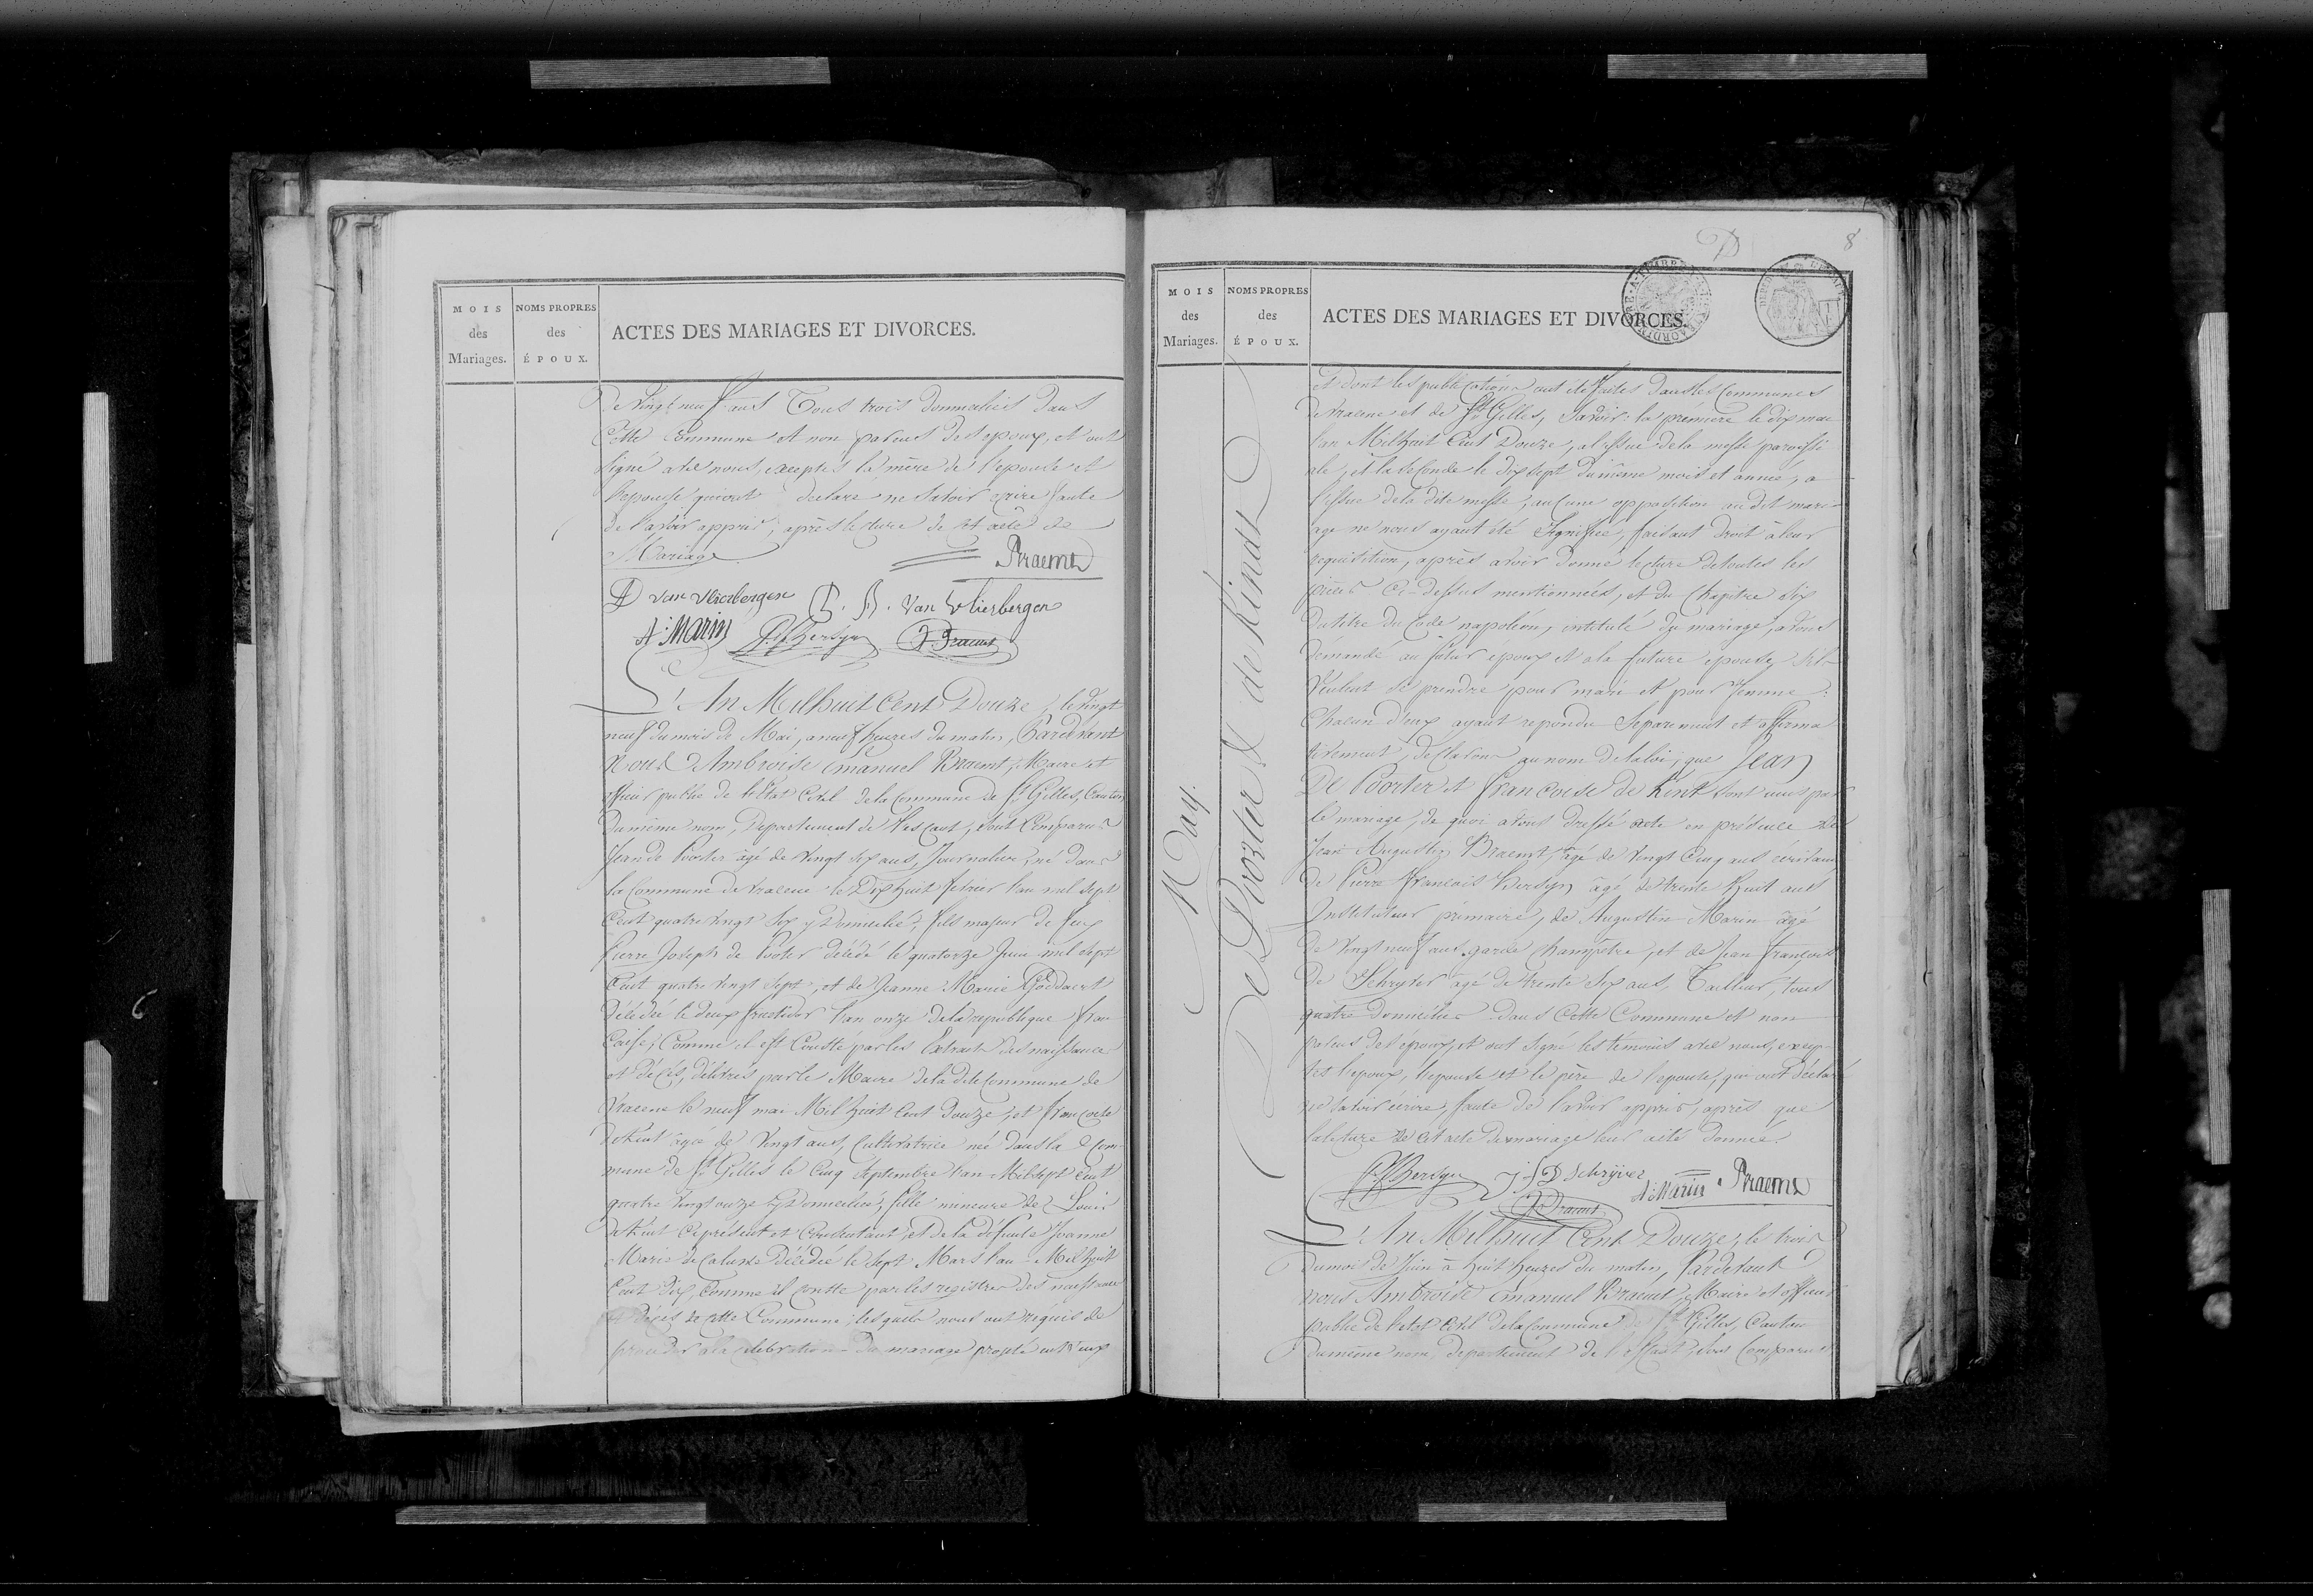 MOIS
des
Mariages.
NOMS PROPRES
des
ÉPOUX.
ACTES DES MARIAGES ET DIVORCES.
De Vingt neuf ans Tous trois domiciliés dans
Cette Commune et non parens des epoux, et ont
signé avec nous, exceptés la mère de l'epouse et
l'epouse qui ont declaré ne savoir ecrire faute
de l'avoir appris, après lecture de cet acte de
Mariage
Braem
D van vlierbergen
Van Vlierbergen
A: Marin
P. F. Bersyn
J. Braem
L'An Mil huit Cent Douze, le vingt
neuf du mois de Mai, a neuf heures du matin, Pardevant
Nous Ambroise Emanuel Braemt, Maire et
officier public de l'Etat Civil de la Commune de St Gilles, Canton
du même nom, Departement de l'Escaut, sont Comparus
Jean de Poorter âgé de vingt six ans, Journalier, né dans
la Commune de Vracene le Dix huit fevrier l'an mil sept
Cent quatre vingt Six y Domicilié, fils majeur de feux
Pierre Joseph de Porter décédé le quatorze Juin mil sept
Cent quatre vingt sept, et de Jeanne Marie Goddaert
décédée le deux fructidor l'an onze de la republique fran
caise; Comme il est Consté par les Extraits des naissances
et décès, délivrés par le Maire de la dite Commune de
Vracene le neuf mai Mil huit Cent Douze, et francoise
de Kint agée de Vingt ans, Cultivatrice née dans la Com-
mune de St Gilles le Cinq Septembre l'an Mil sept Cent
quatre Vingt onze y Domiciliée, fille mineure de Louis
de Kint Ci présent et Consentant, et de la défunte Joanne
Marie de Caluwe décédée le sept Mars l'an Mil huit
Cent Dix, Comme il conste par les registres des naissances
et décès de cette Commune; lesquels nous ont requis de
proceder a la Celebration du mariage projeté entr'eux
D
8
MOIS
des
Mariages.
NOMS PROPRES
des
ÉPOUX.
ACTES DES MARIAGES ET DIVORCES.
May.
De Poorter & de Kindt
Et dont les publications ont été faites dans les Communes
de Vracene et de St Gilles, Savoir: la première le dix mai
l'an Mil huit Cent Douze, a l'issue de la messe paroissi
ale, et la Seconde le dix sept du même mois et année, a
l'issue de la dite messe, aucune opposition au dit mari-
age ne nous ayant été Signifiée, faisant Droit à leur
requisition, après avoir donné lecture de toutes les
pièces Ci-dessus mentionnées, et du Chapitre Six
du titre du Code napoléon, intitulé du mariage, avons
Démandé au futur epoux et a la future epouse, s'il
Veulent se prendre pour mari et pour femme:
Chacun d'eux ayant repondu Separement et affirma
tivement, declarons au nom de la loi, que Jean
De Poorter et francoise de Kint sont unis par
le mariage, de quoi avons dressé acte en présence de
Jean Augustin Braemt, âgé de vingt Cinq ans écrivain
de Pierre francois Bersyn âgé de trente huit ans
Instituteur primaire, de Augustin Marin âgé
de vingt neuf ans garde champêtre, et de Jean françois
De Schryver âgé de trente Six ans, Tailleur, tous
quatre domiciliés dans Cette Commune et non
parens des époux, et ont signé les témoins avec nous, excep-
tés l'epoux, l'epouse et le père de l'epouse, qui ont déclaré
ne savoir écrire, faute de l'avoir appris, après que
la lecture de cet acte de mariage leur a été donnée.
P. F. Bersyn
J. f D Schrÿver
A: Marin
Braem
J. Braem
L'An Mil huit Cent Douze, le trois
du mois de Juin à huit heures du matin, Pardevant
nous Ambroise Emanuel Braemt, Maire et officier
public de l'etat Civil de la Commune St Gilles, Canton
du même nom, departement de l'Escaut, sont Comparus